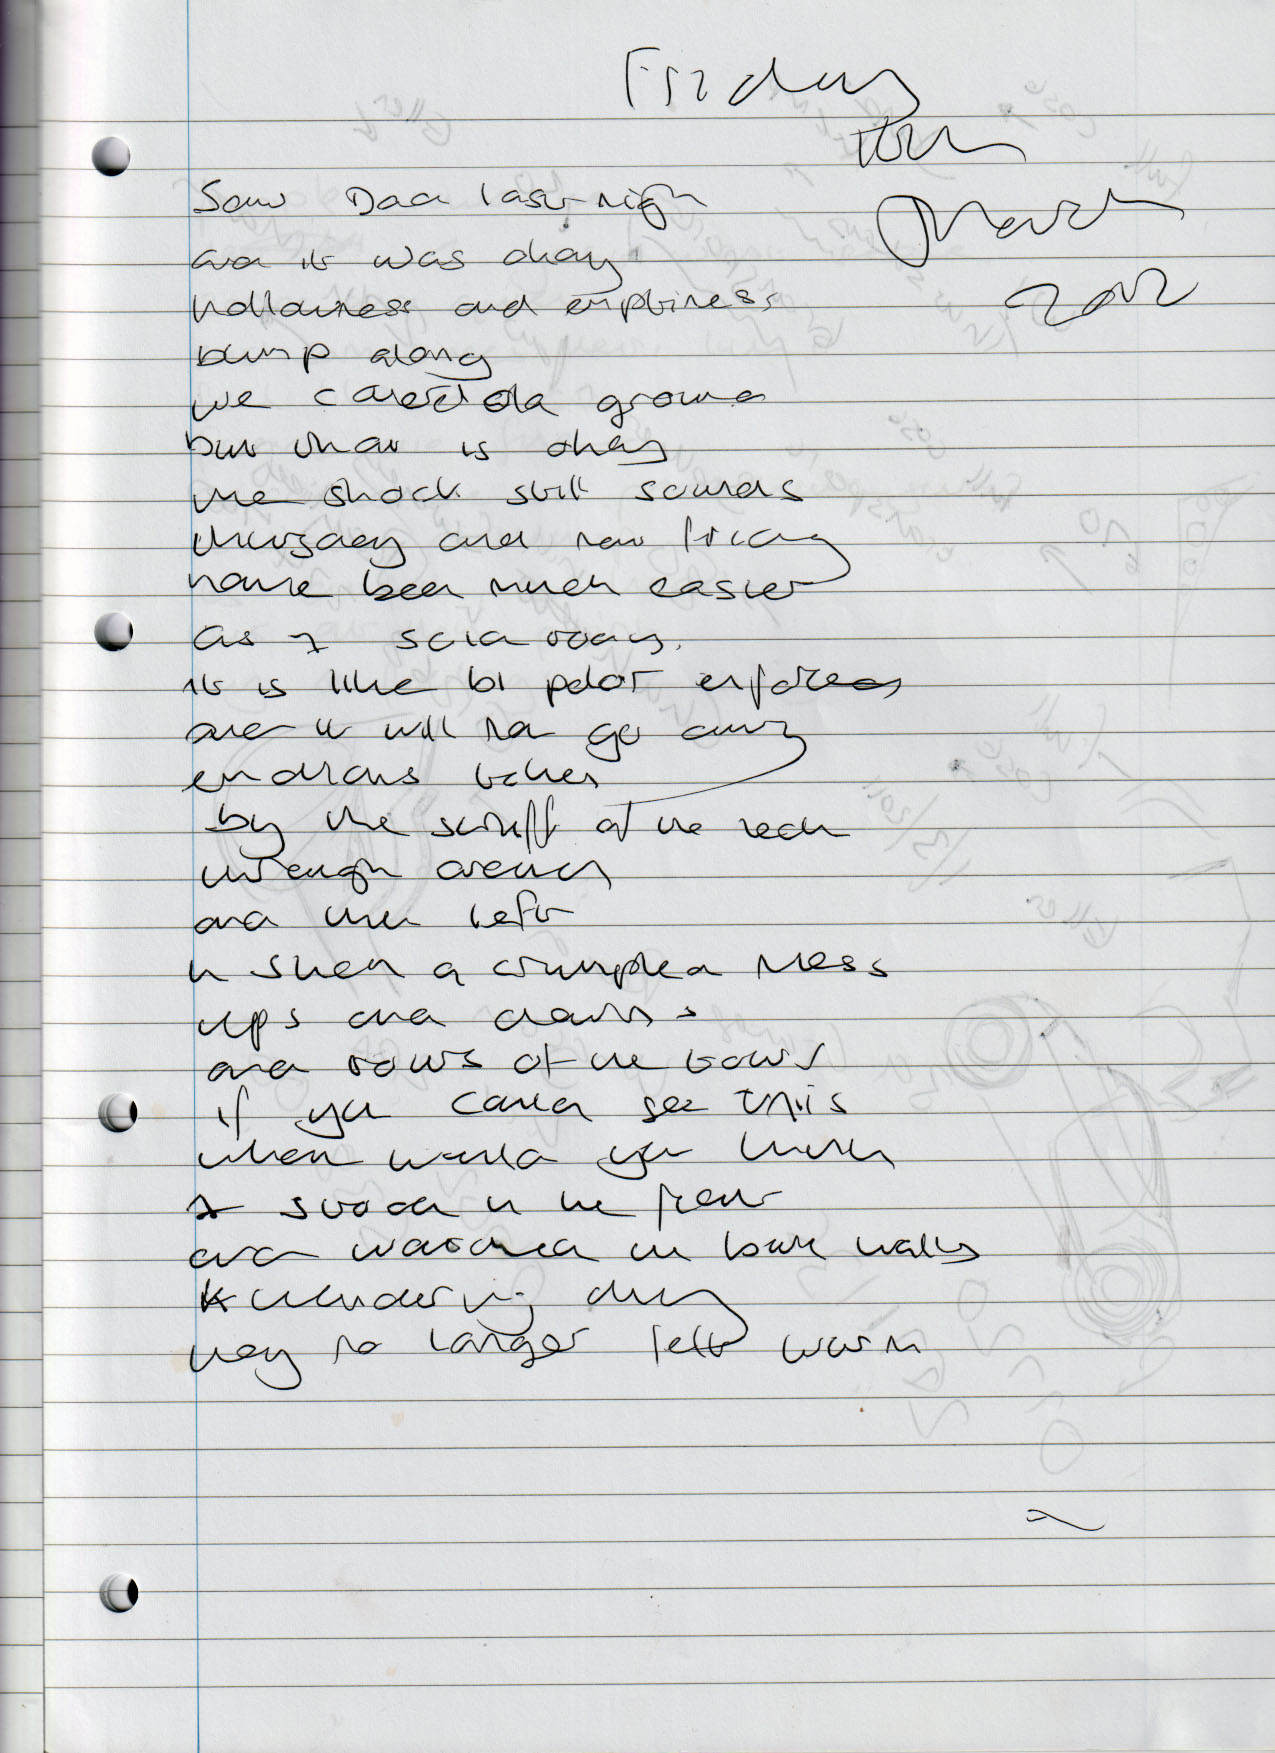 Friday
March
2012
Saw Dad last night
and it was okay
hollowness and emptiness
bump along
we covered old ground
but that is okay
the shock still sounds
thursday and now friday
have been much easier
as I said today.
it is like bi polar enforced
and it will not go away
taken
by the scruff of the neck
through
and then left
in such a crumpled mess
ups and downs
and rows of the
if you could see this
what would you think
I stood in the
and watched the
day
they no longer felt warm